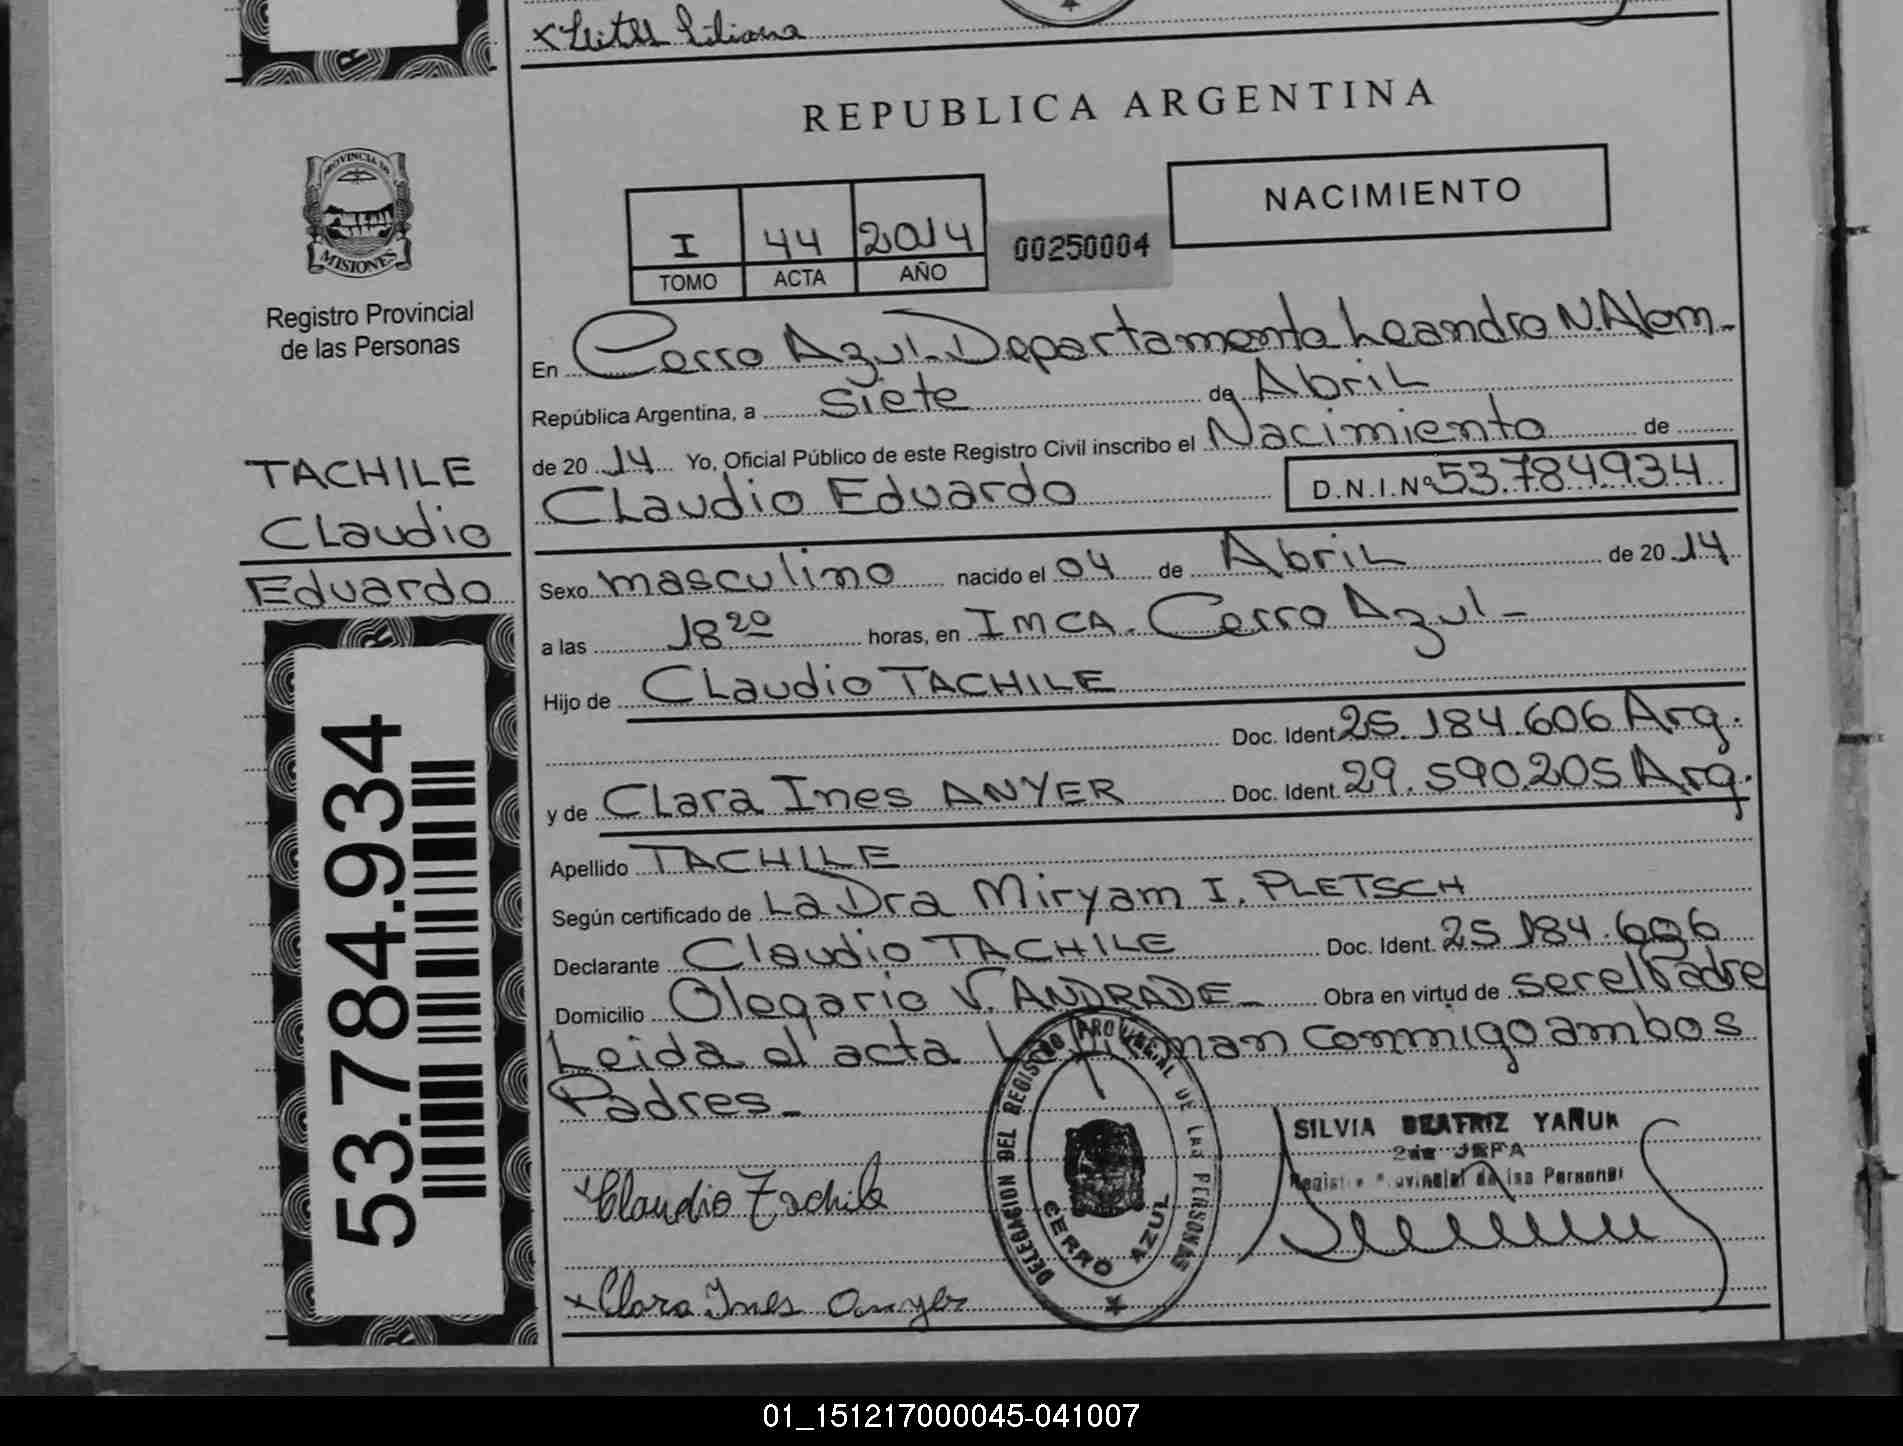 x Liliana
REPUBLICA ARGENTINA
PROVINCIA DE
MISIONES
Registro Provincial
de las Personas
NACIMIENTO
I 44 2014
TOMO ACTA AÑO
00250004
En Cerro Azul-Departamento Leandro N. Alem-
República Argentina, a siete de Abril
de 20 14 Yo, Oficial Público de este Registro Civil inscribo el Nacimiento de
Claudio Eduardo D.N.I.Nº 53.784934
TACHILE
Claudio
Eduardo
Sexo masculino nacido el 04 de Abril de 20 14
a las 18 20 horas, en IMCA. Cerro Azul-
Hijo de Claudio TACHILE
Doc. Ident. 25.184.606 Arg.
y de Clara Ines ANYER Doc. Ident. 29.590.205 Arg.
Apellido TACHILE
Según certificado de La Dra Miryam I. PLETSCH
Declarante Claudio TACHILE Doc. Ident. 25 184.606
Domicilio Olegario V. ANDRADE- Obra en virtud de ser el Padre
Leida el acta conmigo ambos
Padres-
53.784.934
DELEGACION DEL REGISTRO PROVINCIAL DE LAS PERSONAS
CERRO AZUL
SILVIA BEATRIZ YANUK
2da JEFA
Registro Provincial de las Personas
x Claudio Tachile
x Clara Ines Anyer
01_151217000045-041007